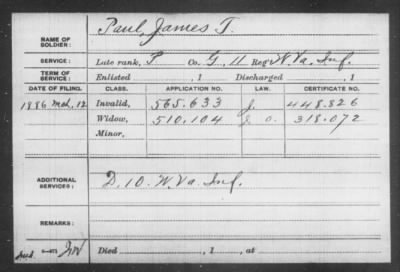 NAME OF SOLDIER: Paul, James T.
SERVICE: Late rank, P Co. G, 11 Reg't W. Va. Inf.
TERM OF SERVICE: Enlisted , 1 Discharged , 1
DATE OF FILING. CLASS. APPLICATION NO. LAW. CERTIFICATE NO.
1886 Mch, 12 Invalid, 565.633 J. 448.826
Widow, 510.104 J. O. 318.072
Minor,
ADDITIONAL SERVICES: D. 10. W. Va. Inf.
REMARKS:
Died , 1 , at